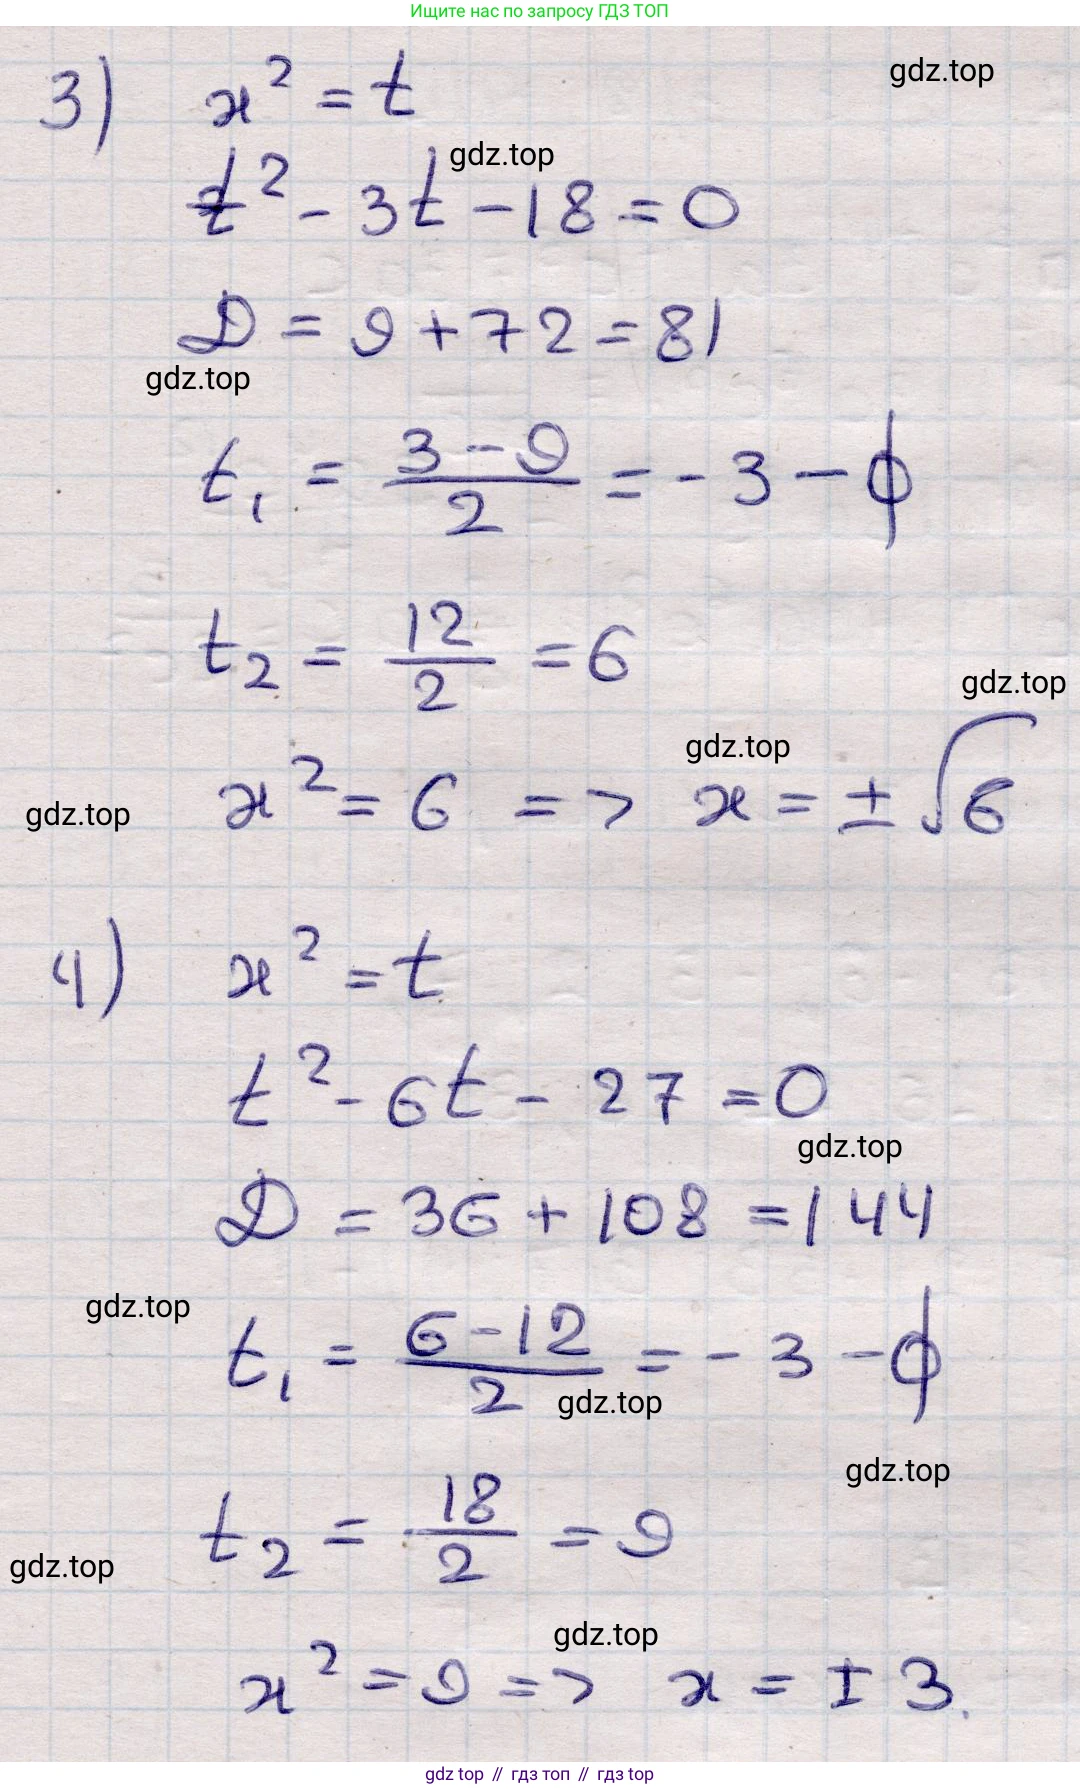 Ищите нас по запросу ГДЗ ТОП
gdz.top
3) x² = t
gdz.top
t² - 3t - 18 = 0
D = 9 + 72 = 81
gdz.top
t₁ = (3 - 9)/2 = -3 - ϕ
t₂ = 12/2 = 6
gdz.top
gdz.top
x² = 6 => x = ± √6
gdz.top
4) x² = t
t² - 6t - 27 = 0
gdz.top
D = 36 + 108 = 144
gdz.top
t₁ = (6 - 12)/2 = -3 - ϕ
gdz.top
gdz.top
t₂ = 18/2 = 9
gdz.top
gdz.top
x² = 9 => x = ± 3.
gdz top // гдз топ // gdz top